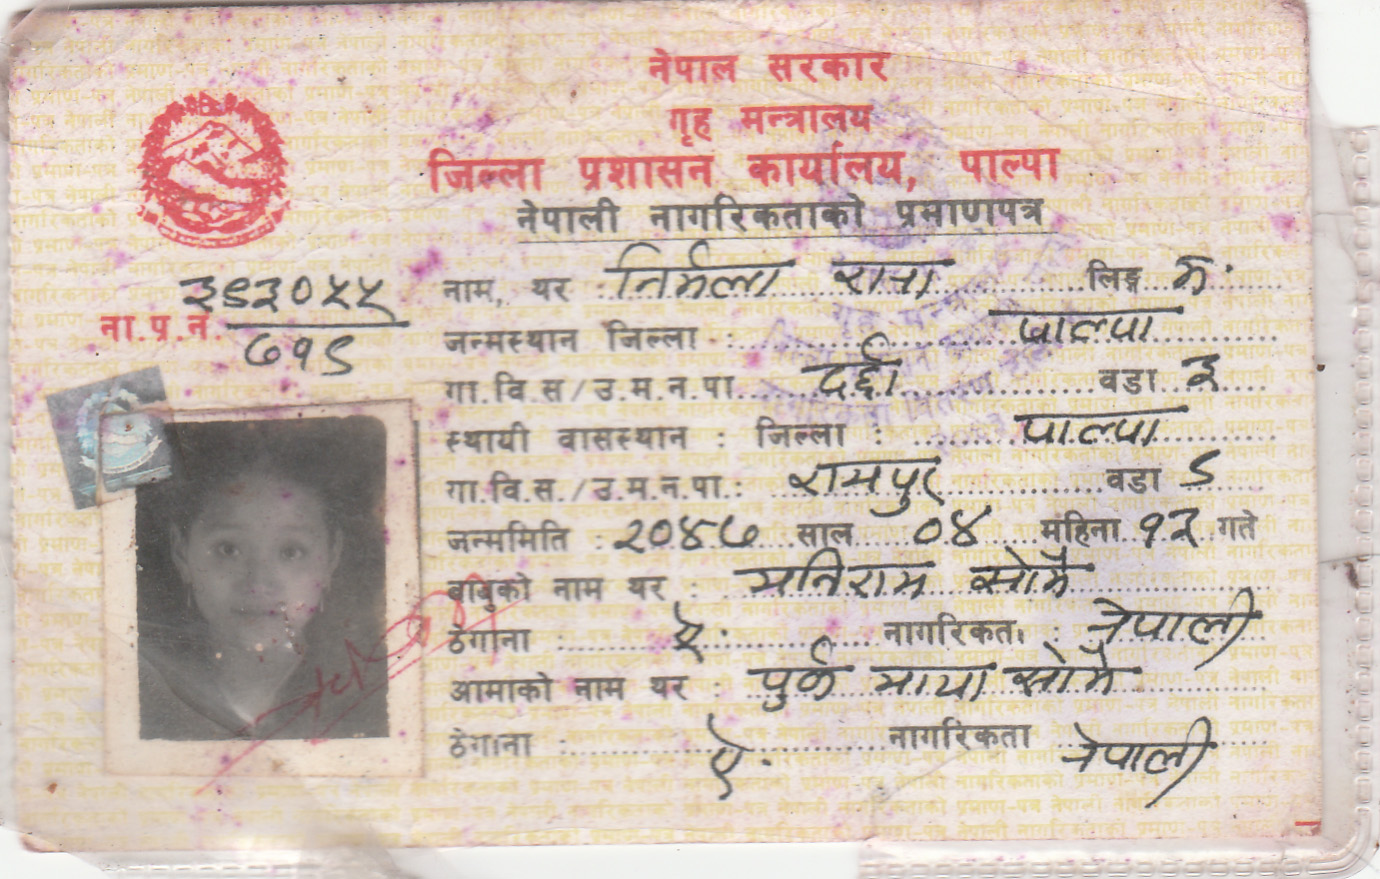 नेपाल सरकार
गृह मन्त्रालय
जिल्ला प्रशासन कार्यालय, पाल्पा
नेपाली नागरिकताको प्रमाणपत्र
ना.प्र.नं. ३९३०५५/७१९
नाम, थर : निर्मला राना लिङ्ग म.
जन्मस्थान जिल्ला : पाल्पा
गा.वि.स/उ.म.न.पा. वडा ३
स्थायी वासस्थान : जिल्ला : पाल्पा
गा.वि.स./उ.म.न.पा.: रामपुर वडा ९
जन्ममिति : २०४७ साल ०४ महिना १३ गते
बाबुको नाम थर :
ठेगाना : ऐ. नागरिकता : नेपाली
आमाको नाम थर : माया
ठेगाना : ऐ. नागरिकता नेपाली